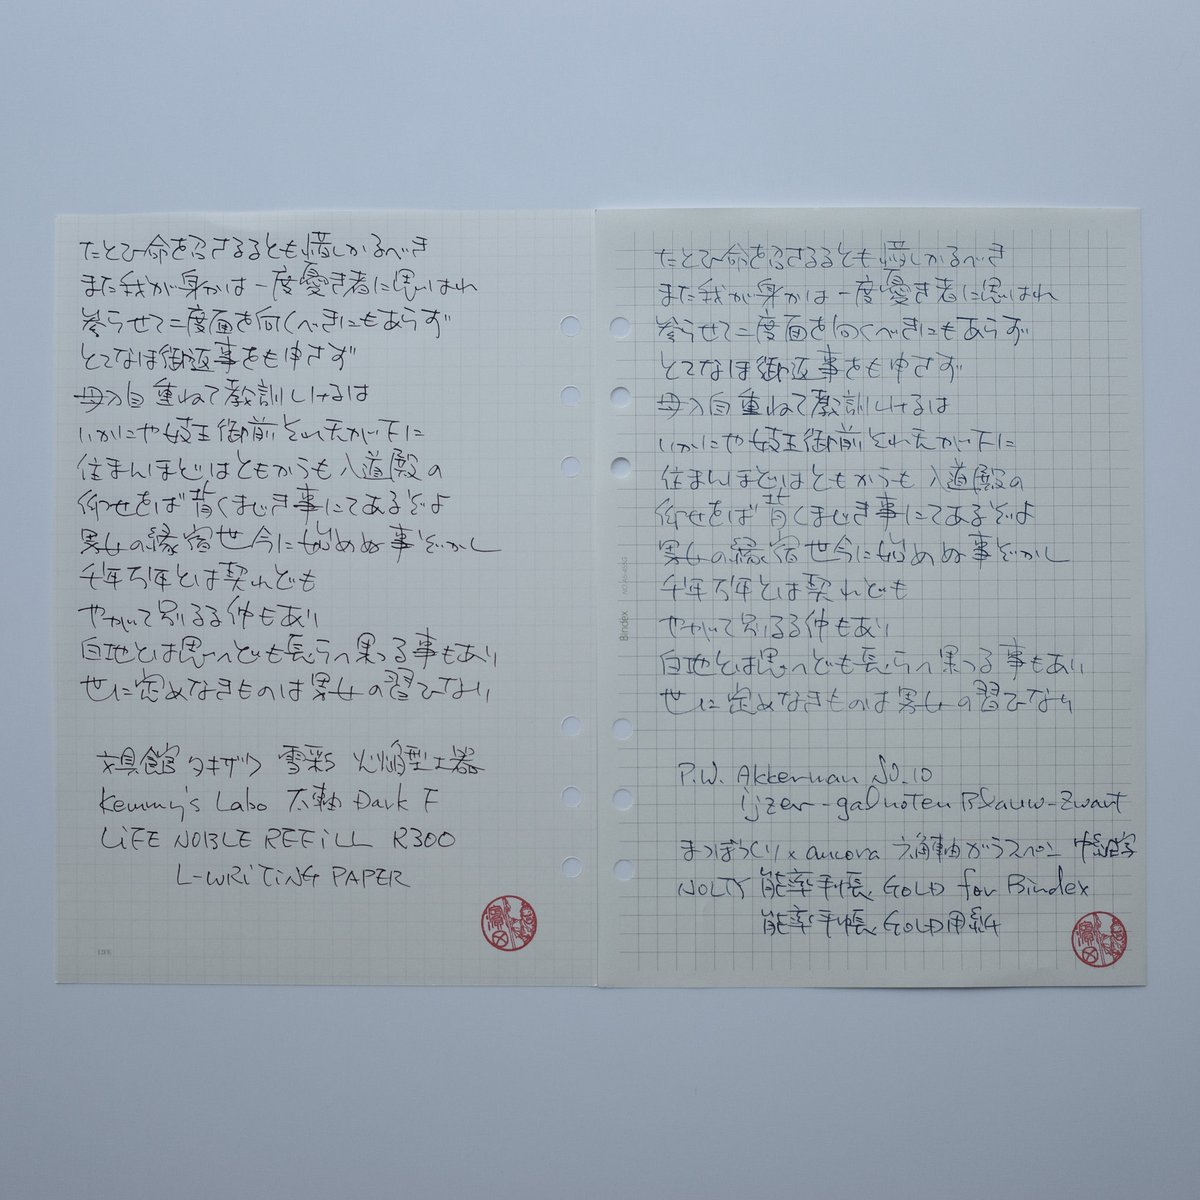 たとひ命を召さるるとも惜しかるべき
また我が身かは一度憂き者に思はれ
参らせて二度面を向くべきにもあらず
とてなほ御返事をも申さず
母刀自重ねて教訓しけるは
いかにや妓王御前それ天が下に
住まんほどはともかうも入道殿の
仰せをば背くまじき事にてあるぞよ
男女の縁宿世今に始めぬ事ぞかし
千年万年とは契れども
やがて別るる仲もあり
白地とは思へども長らへ果つる事もあり
世に定めなきものは男女の習ひなり
文具館タキザワ 雪彩 火焔型土器
Kemmy's Labo 太軸 Dark F
LIFE NOBLE REFILL R300
L-WRITING PAPER
LIFE
たとひ命を召さるるとも惜しかるべき
また我が身かは一度憂き者に思はれ
参らせて二度面を向くべきにもあらず
とてなほ御返事をも申さず
母刀自重ねて教訓しけるは
いかにや妓王御前それ天が下に
住まんほどはともかうも入道殿の
仰せをば背くまじき事にてあるぞよ
男女の縁宿世今に始めぬ事ぞかし
千年万年とは契れども
やがて別るる仲もあり
白地とは思へども長らへ果つる事もあり
世に定めなきものは男女の習ひなり
P.W. Akkerman No.10
ijzer-galnoten Blauw-Zwart
まつぼっくり×ancora 六角軸ガラスペン 中細字
NOLTY 能率手帳 GOLD for Bindex
能率手帳 GOLD用紙
Bindex